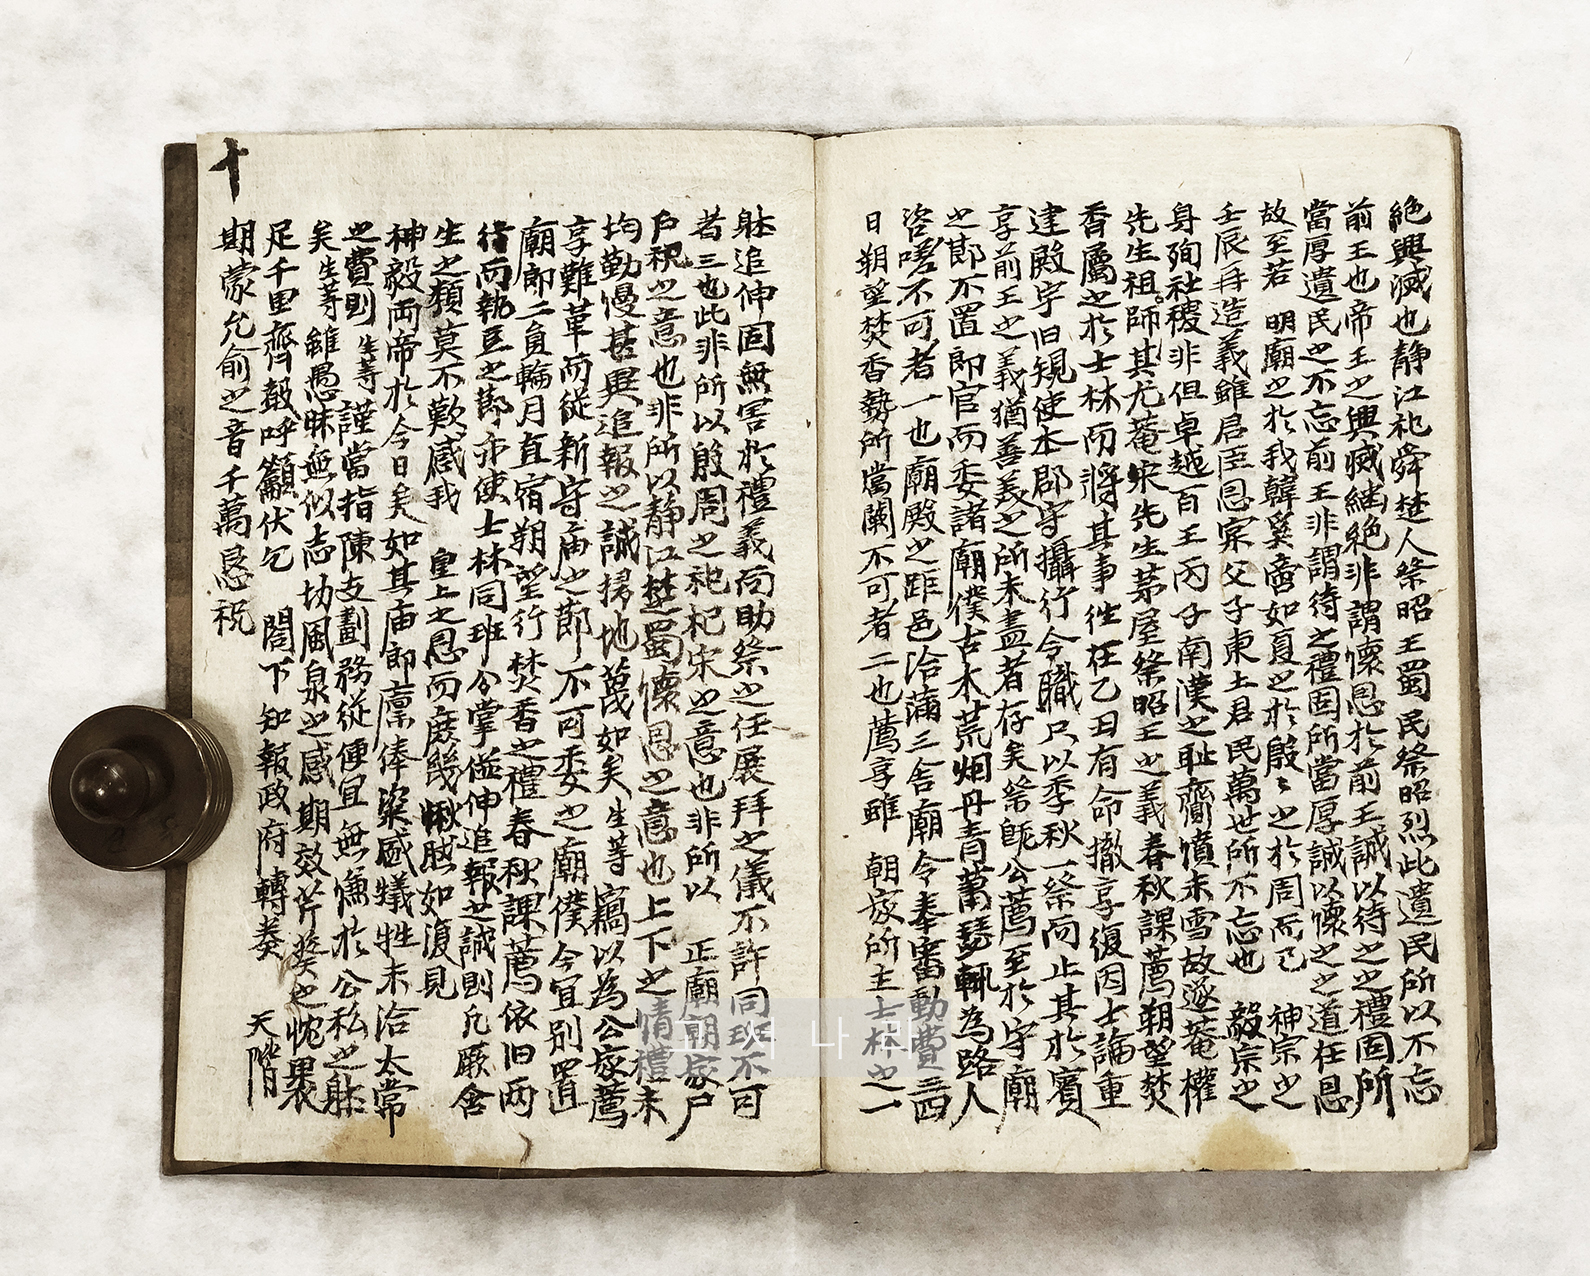 絶興滅也靜江祀舜楚人祭昭王蜀民祭昭烈此遺民所以不忘
前王也帝王之興滅繼絶非謂懷恩於前王誠以待之之禮固所
當厚遺民之不忘前王非謂待之禮固所當厚誠以懷之之道在恩
故至若 明廟之於我韓奚啻如夏之於殷殷之於周而已 神宗之
壬辰再造義雖君臣恩宗父子東土君民萬世所不忘也 毅宗之
身殉社稷非但卓越百王丙子南漢之耻齎憤未雪故遂菴權
先生祖師其尤菴宋先生茅屋祭昭王之義春秋課薦朔望焚
香屬之於士林而將其事往在乙丑有命撤享復因士論重
建殿宇旧規使本郡守攝行令職只以季秋一祭而止其於賓
享前王之義猶善義之所未盡者存矣祭旣公薦至於守廟
之節不置郎官而委諸廟僕古木荒烟丹青蕭瑟輒為路人
咨嗟不可者一也廟殿之距邑洽滿三舍廟令奉審動費三四
日朔望焚香勢所當闕不可者二也薦享雖 朝家所主士林之一
躰追伸固無害於禮義而助祭之任展拜之儀不許同班不可
者三也此非所以殷周之祀杞宋之意也非所以 正廟朝家尸
戶祝之意也非所以靜江楚蜀懷恩之意也上下之情禮未
均勤慢甚異追報之誠掃地蔑如矣生等竊以為公家薦
享難革而從新守庙之節不可委之廟僕今宜別置
廟郎二負輪月直宿朔望行焚香之禮春秋課薦依旧兩
行而執豆之節亦使士林同班令掌益伸追報之誠則凡厥含
生之類莫不歎感我 皇上之恩而庶幾愀然如復見
神毅兩帝於今日矣如其庙郎稟俸粢盛犧牲未洽太常
之費則生等謹當指陳支劃務從便宜無慊於公私之躰
矣生等雖愚昧無似志切風泉之感期效芹葵之忱裹
足千里齊聲呼籲伏乞 閤下知報政府轉奏 天階
期蒙允俞之音千萬恳祝
十
고서나라